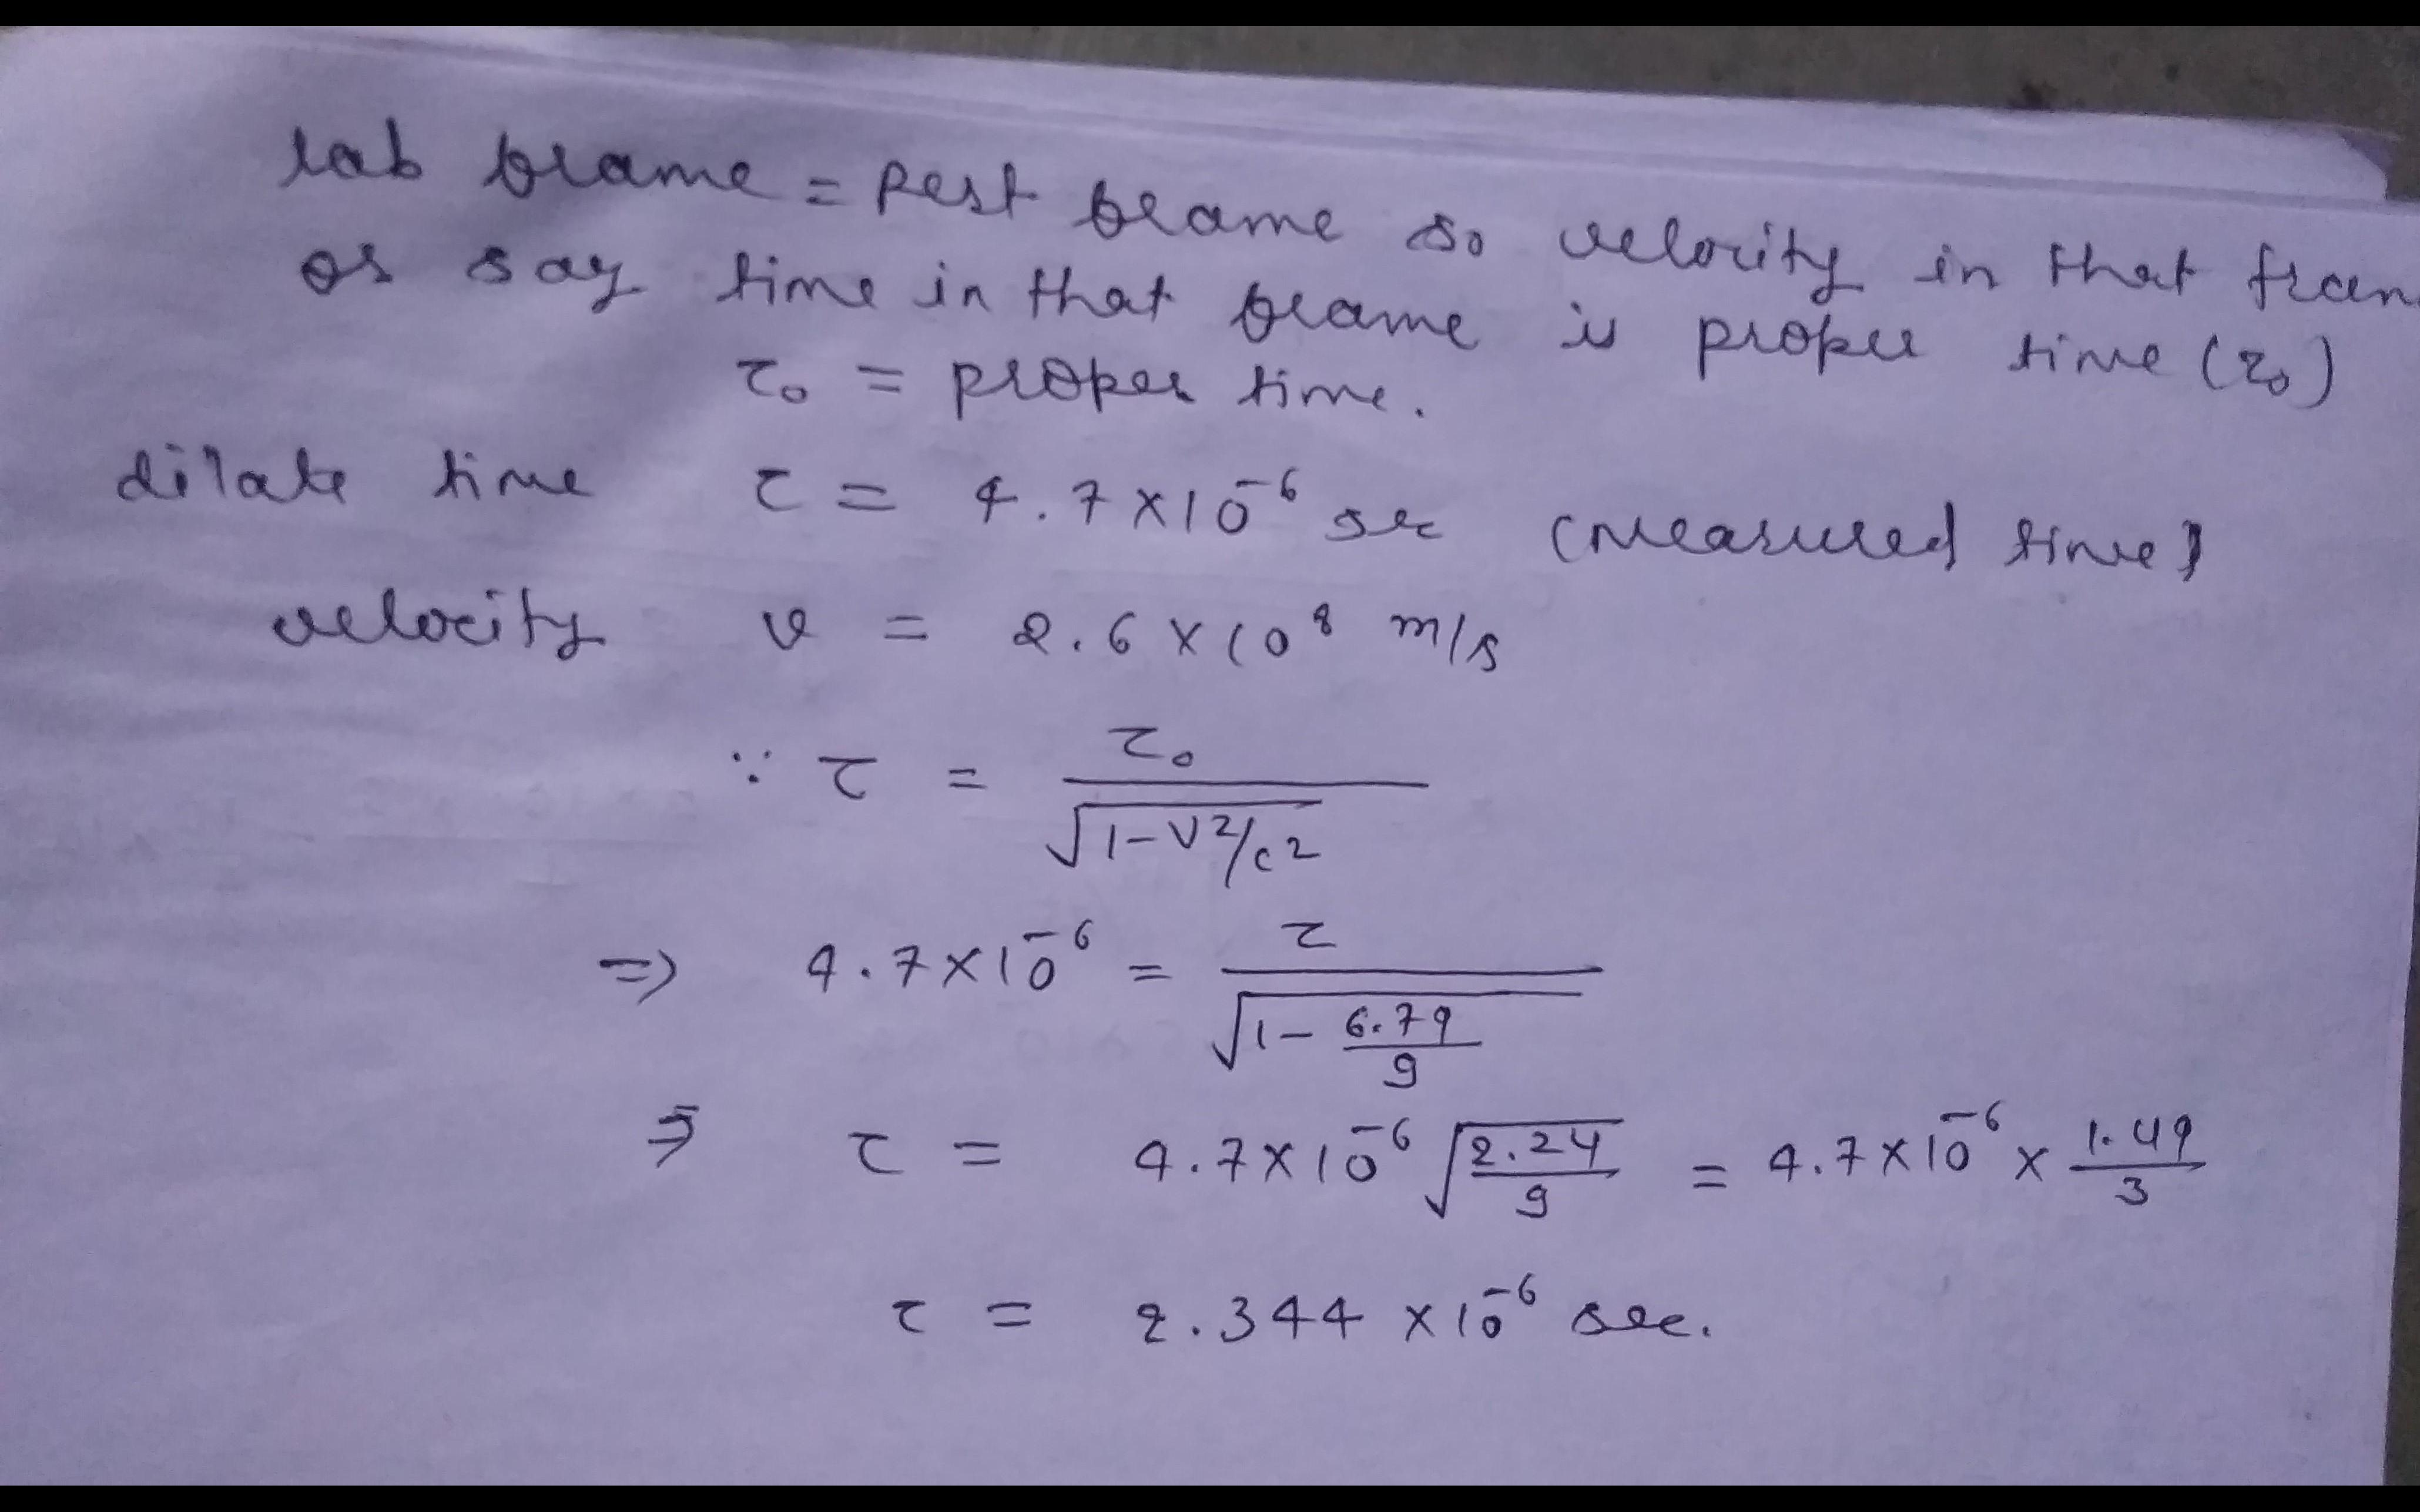 lab frame = Rest frame so velocity in that fram
or say time in that frame is proper time (τ₀)
τ₀ = proper time.
dilate time τ = 4.7 × 10⁻⁶ sec (measured time)
velocity v = 2.6 × 10⁸ m/s
∵ τ = τ₀ / √(1 - v²/c²)
⇒ 4.7 × 10⁻⁶ = τ / √(1 - 6.79/9)
⇒ τ = 4.7 × 10⁻⁶ √(2.24/9) = 4.7 × 10⁻⁶ × 1.49/3
τ = 2.344 × 10⁻⁶ sec.